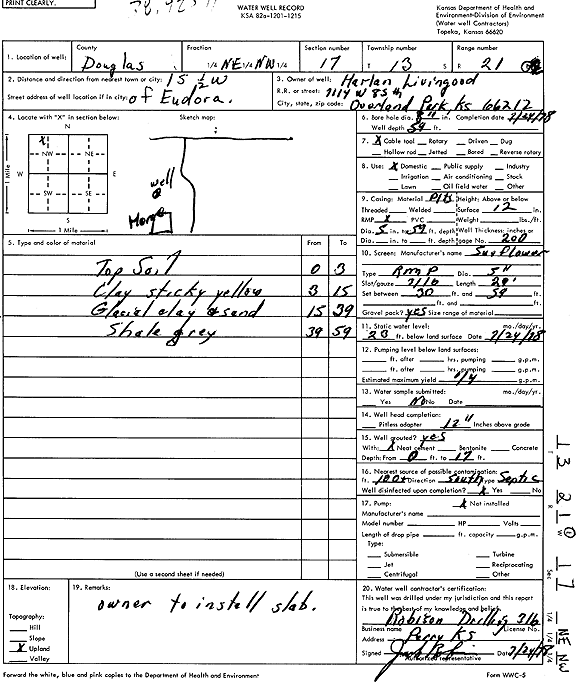 PRINT CLEARLY.
WATER WELL RECORD
KSA 82a-1201-1215
Kansas Department of Health and
Environment-Division of Environment
(Water well Contractors)
Topeka, Kansas 66620
1. Location of well:
County
Douglas
Fraction
1/4 NE 1/4 NW 1/4
Section number
17
Township number
T 13 S
Range number
R 21
2. Distance and direction from nearest town or city: 15 1/2 W
Street address of well location if in city: of Eudora.
3. Owner of well: Harlan Livingood
R.R. or street: 9114 W 85th
City, state, zip code: Overland Park Ks 66212
4. Locate with "X" in section below:
Sketch map:
N
X
NW NE
W E
SW SE
S
1 Mile
1 Mile
well
6. Bore hole dia. 8" in. Completion date 7/24/78
Well depth 59 ft.
7. X Cable tool Rotary Driven Dug
Hollow rod Jetted Bored Reverse rotary
8. Use: X Domestic Public supply Industry
Irrigation Air conditioning Stock
Lawn Oil field water Other
9. Casing: Material Height: Above or below
Threaded Welded Surface 12 in.
RMP X PVC Weight lbs./ft.
Dia. 5 in. to 59 ft. depth Wall Thickness: inches or
Dia. in. to ft. depth gage No. 200
5. Type and color of material
From To
Top Soil 0 3
Clay sticky yellow 3 15
Glacial clay & sand 15 39
Shale grey 39 59
(Use a second sheet if needed)
10. Screen: Manufacturer's name Sunflower
Type RMP Dia. 5"
Slot/gauze 7/16 Length 29'
Set between 30 ft. and 59 ft.
ft. and ft.
Gravel pack? yes Size range of material
11. Static water level: mo./day/yr.
23 ft. below land surface Date 7/24/78
12. Pumping level below land surfaces:
ft. after hrs. pumping g.p.m.
ft. after hrs. pumping g.p.m.
Estimated maximum yield 1/4 g.p.m.
13. Water sample submitted: mo./day/yr.
Yes No No Date
14. Well head completion:
Pitless adapter 12" Inches above grade
15. Well grouted? yes
With: X Neat cement Bentonite Concrete
Depth: From 0 ft. to 17 ft.
16. Nearest source of possible contamination:
ft. 100+ Direction South Type Septic
Well disinfected upon completion? X Yes No
17. Pump: X Not installed
Manufacturer's name
Model number HP Volts
Length of drop pipe ft. capacity g.p.m.
Type:
Submersible Turbine
Jet Reciprocating
Centrifugal Other
18. Elevation:
Topography:
Hill
Slope
X Upland
Valley
19. Remarks:
owner to install slab.
20. Water well contractor's certification:
This well was drilled under my jurisdiction and this report
is true to the best of my knowledge and belief.
Robison Drilling 316
Business name License No.
Address Perry Ks
Signed Date 7/24/78
Authorized representative
Forward the white, blue and pink copies to the Department of Health and Environment
Form WWC-5
T 13 R 21 E Sec 17 1/4 1/4 NE NW 1/4